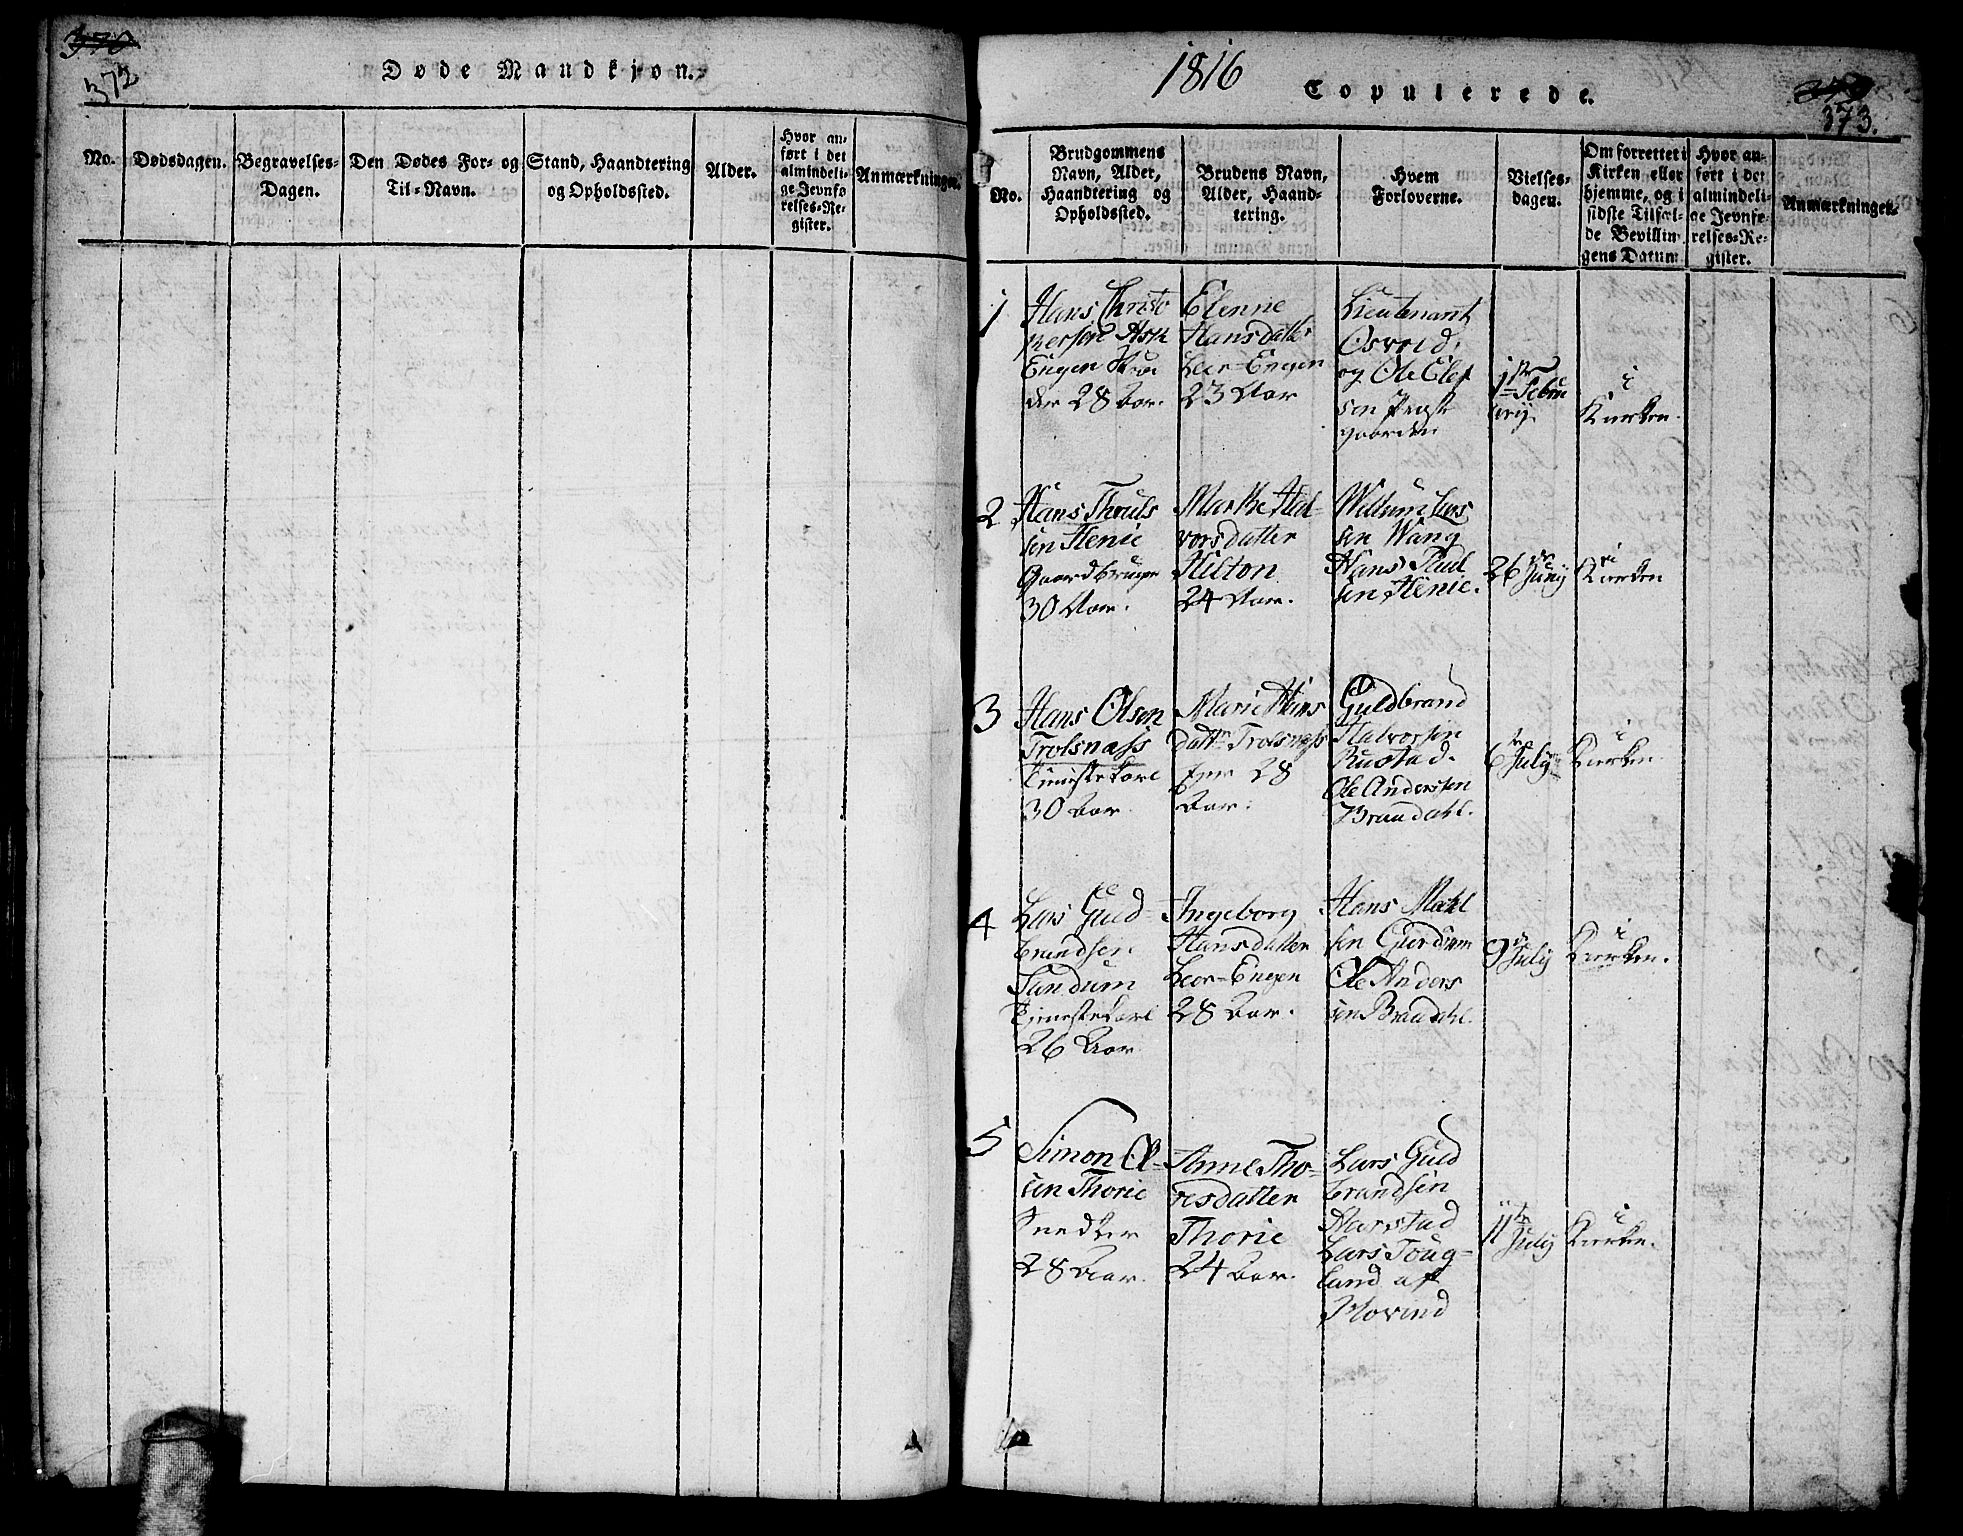 370
372
Døde Mandkjøn.
No.
Dødsdagen.
Begravelses-
Dagen.
Den Dødes For- og
Til-Navn.
Stand, Haandtering
og Opholdssted.
Alder.
Hvor an-
ført i det
almindeli-
ge Jevnfø
relses-Re-
gister.
Anmærkninger.
1816
Copulerede.
373.
No.
Brudgommens
Navn, Alder,
Haandtering og
Opholdssted.
Brudens Navn,
Alder, Haand-
tering.
Hvem
Forloverne.
Vielses-
dagen.
Om forrettet i
Kirken eller
hjemme, og i
sidste Tilfæl-
de Bevillin-
gens Datum
Hvor an-
ført i det
almindeli-
ge Jevnfø-
relses-Re-
gister.
Anmærkninger.
1
Hans Christo
phersen Ask
Engen
der 28 Aar.
Elenne
Hansdatter
Leer-Engen
23 Aar
Lieutenant
Osvold,
og Ole Olef
sen Præste
gaarden
1ste Febru
arij.
i
Kirken.
2
Hans Thruls
sen Henie
Gaardbruger
30 Aar.
Marthe Hal-
vorsdatter
Hilton
24 Aar.
Willum Lars
sen Wang
Hans Paul
sen Henie.
26de Junij
i
Kirken
3
Hans Olsen
Trolsnæss
Tjenistekarl
30 Aar.
Marie Hans
dattr Trolsnæss
28
Aar.
Guldbrand
Halvorsen
Rustad.
Ole Anderssen
Braadahl.
6te Julij
i
Kirken.
4
Lars Guld-
brandsen
Sandum
Tjenistekarl
26 Aar
Ingeborg
Hansdatter
Leer-Engen
28 Aar.
Hans
sen
Ole Anders
sen Braadahl.
9de Julij
i
Kirken.
5
Simon Ol-
sen Thorie
Snedker
28 Aar.
Anne Tho-
resdatter
Thorie
24 Aar.
Lars Guld
brandsen
Harstad
Lars Toug-
lund af
Hovind
11te Julij
i
Kirken.